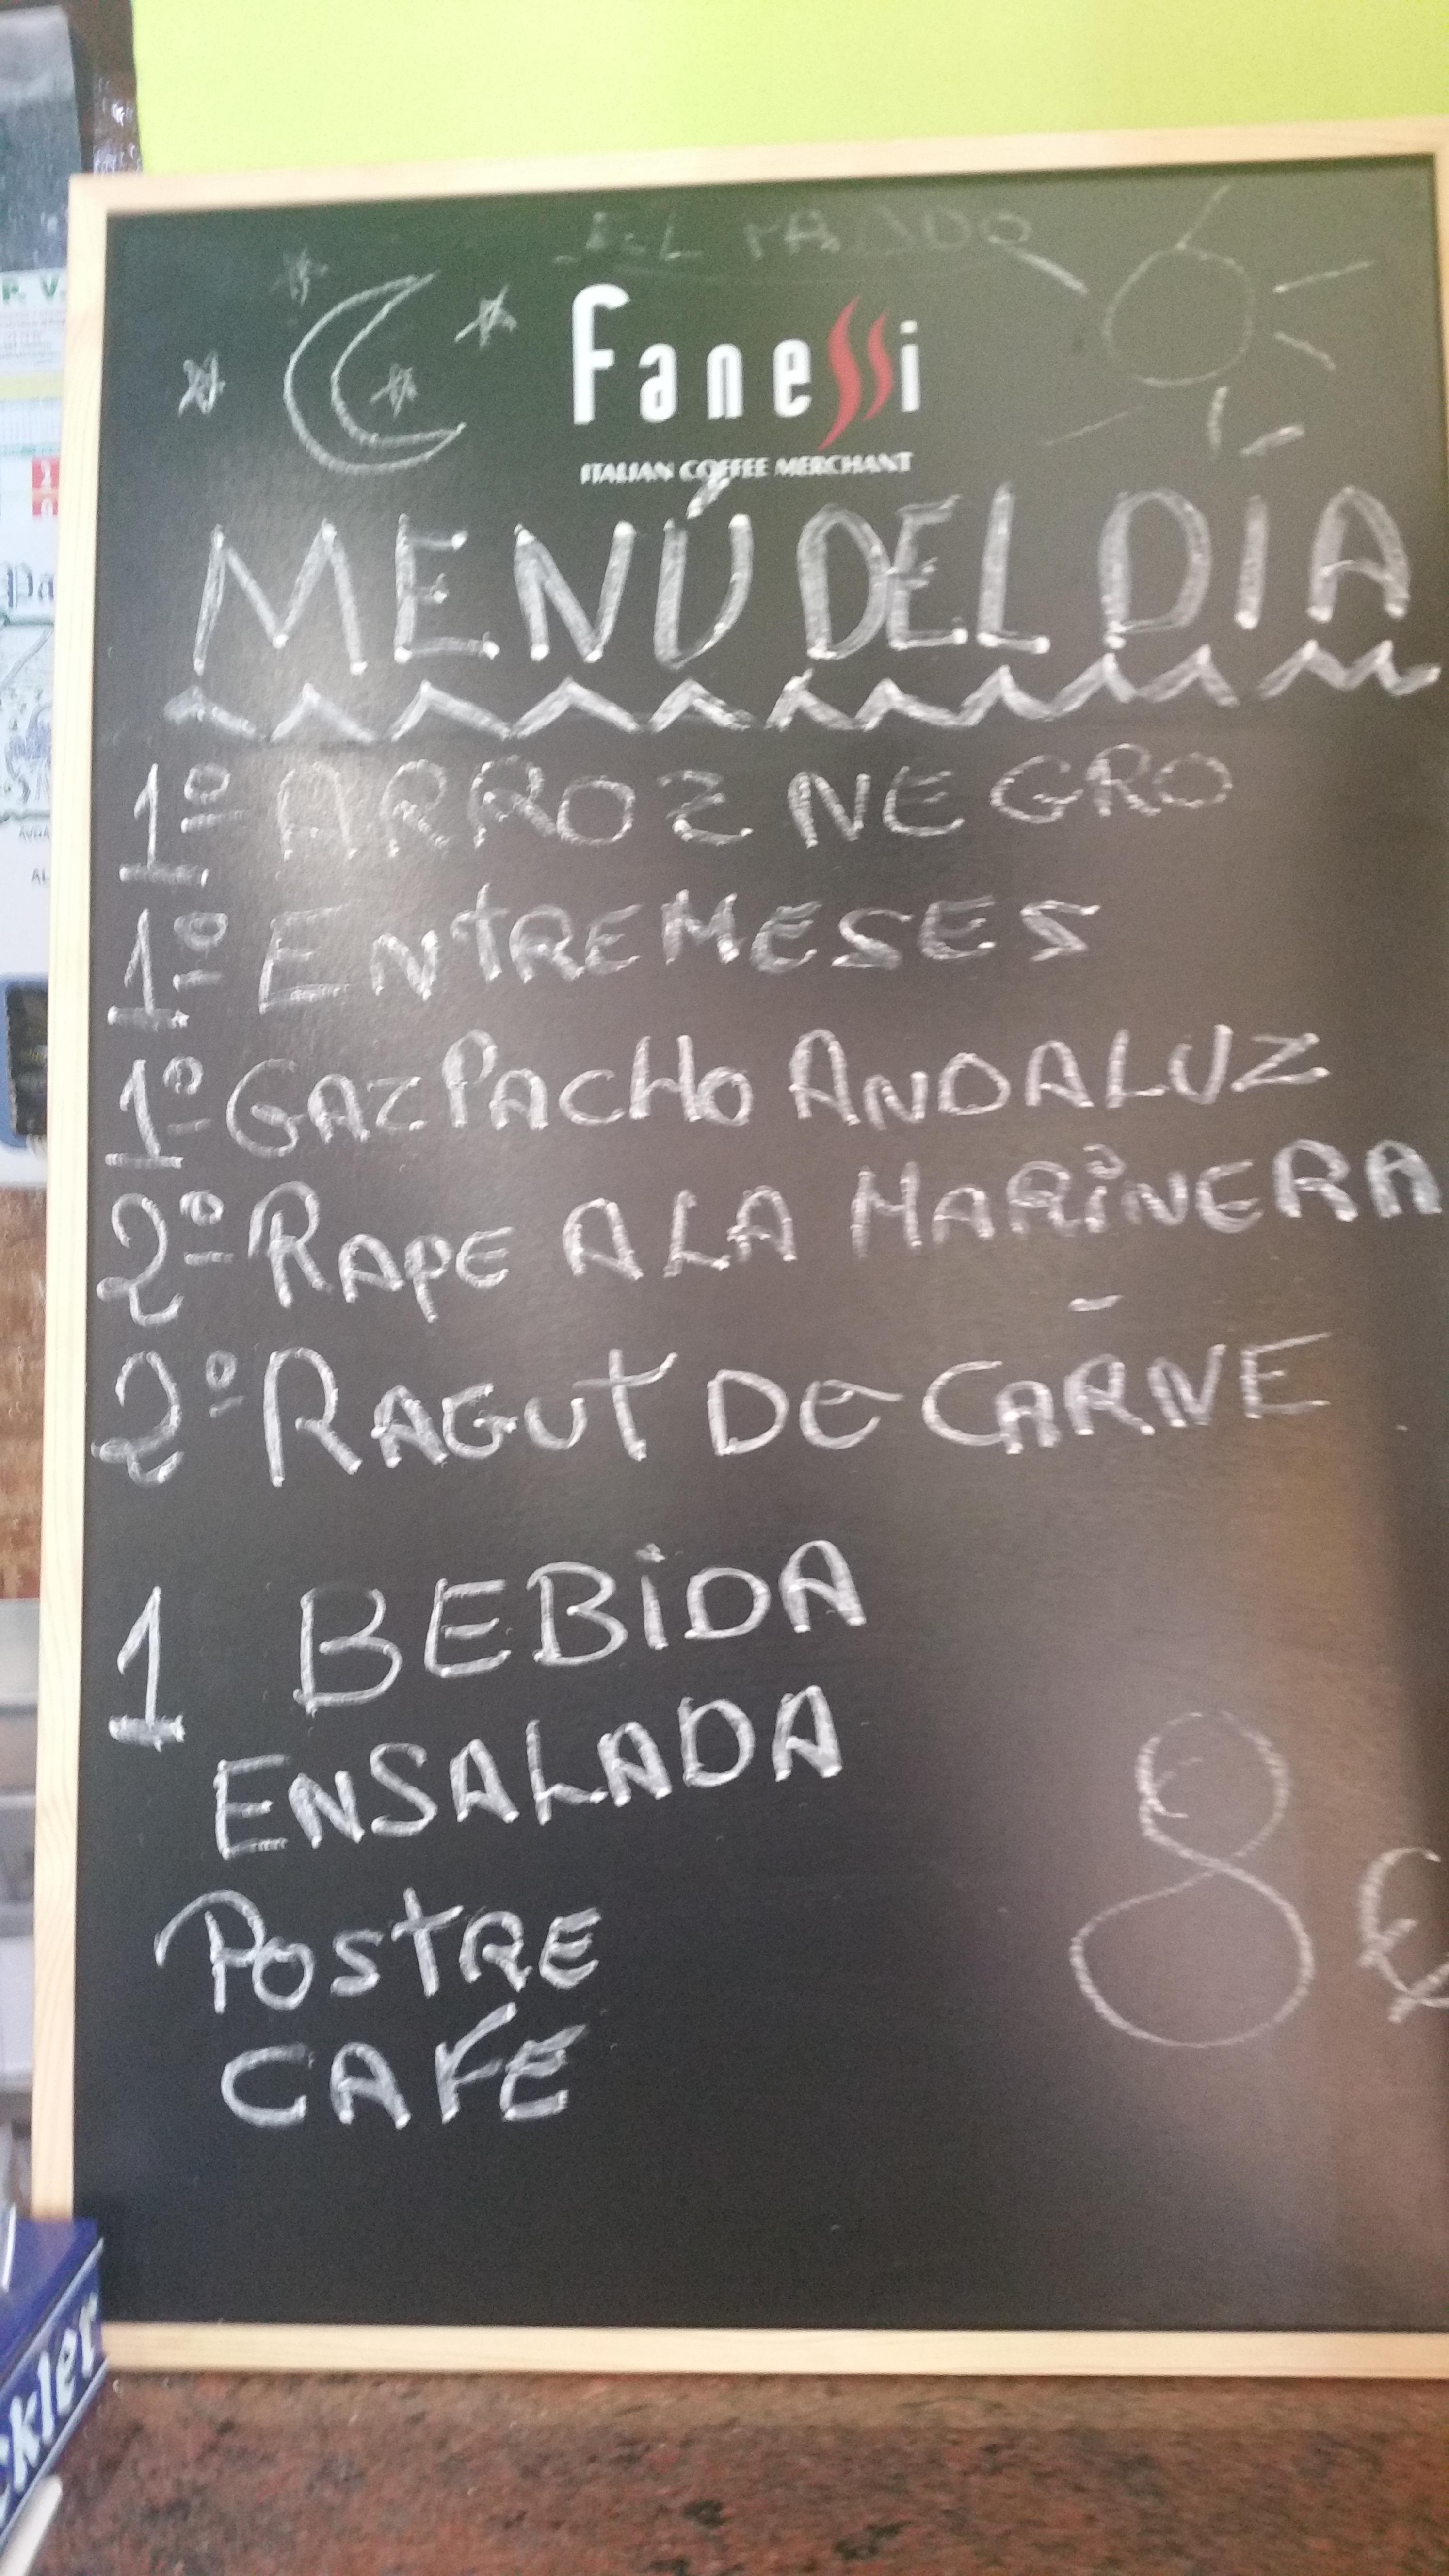 EL PRADO
Fanessi
ITALIAN COFFEE MERCHANT
MENÚ DEL DÍA
1º ARROZ NEGRO
1º ENTREMESES
1º GAZPACHO ANDALUZ
2º RAPE A LA MARINERA
2º RAGUT DE CARNE
1 BEBIDA
ENSALADA
POSTRE
CAFE
8 €
P. V.
Pa
AL
kler